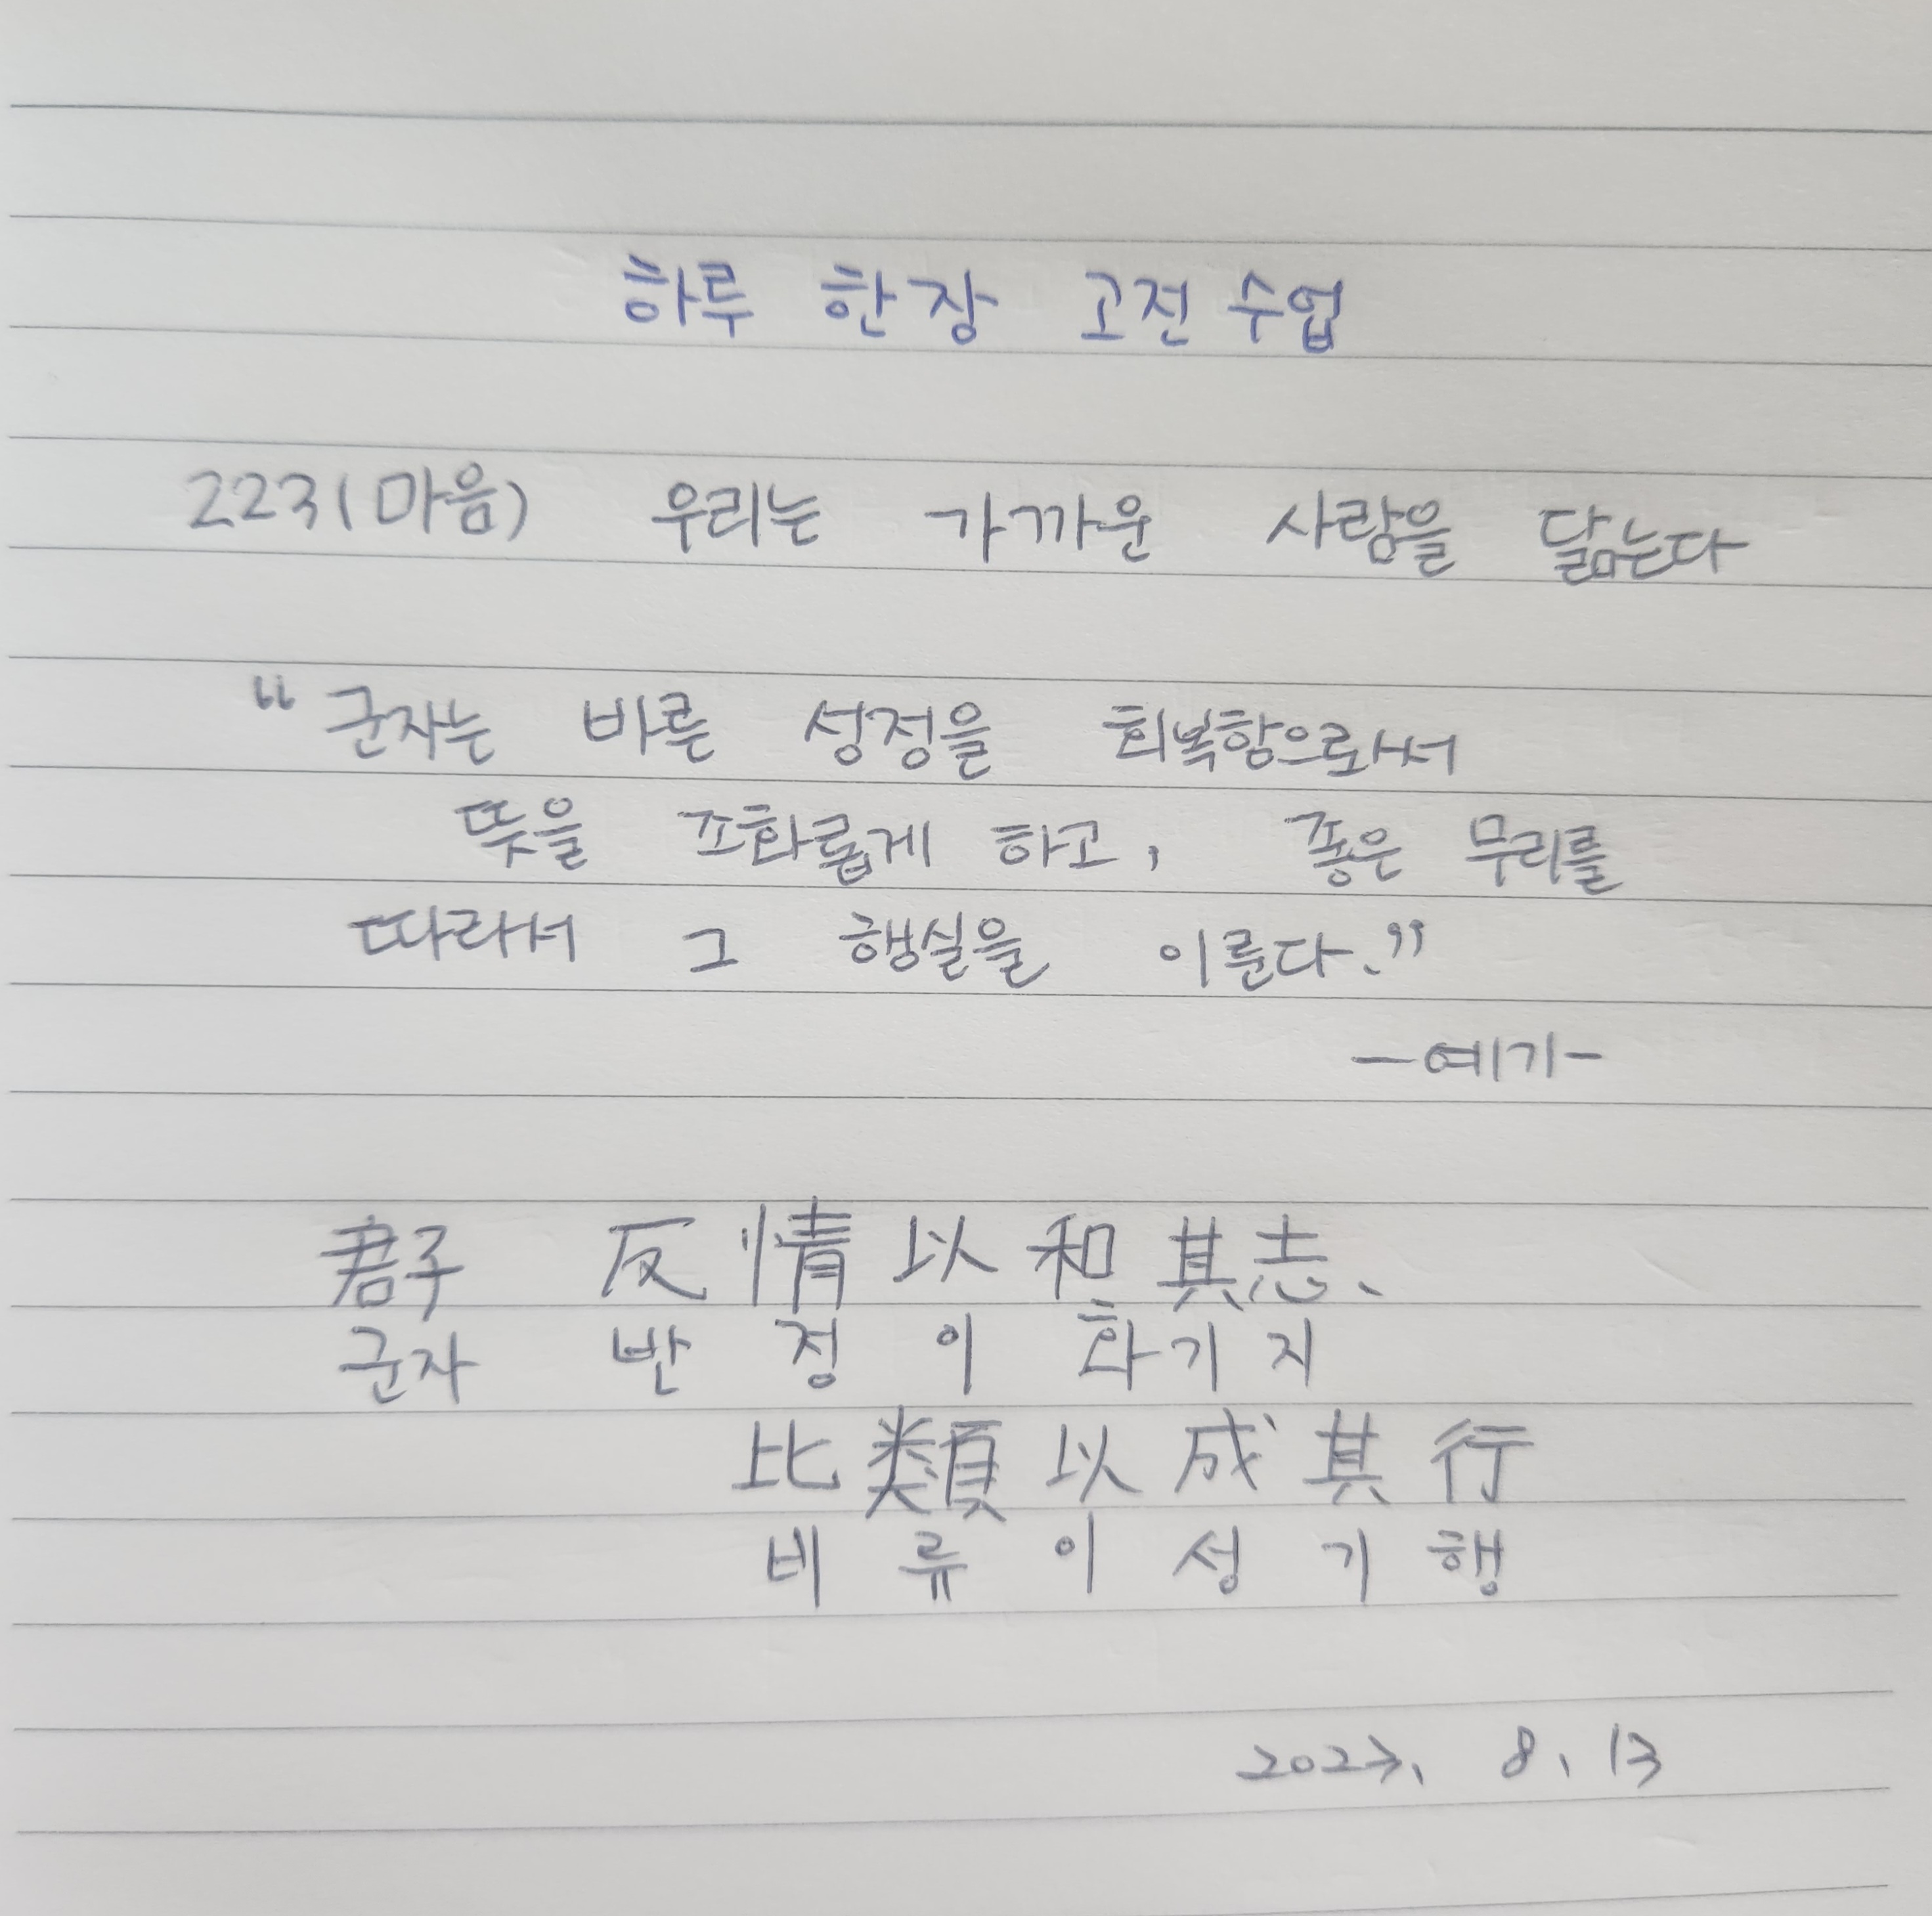 하루 한장 고전 수업
223(마음) 우리는 가까운 사람을 닮는다
“군자는 바른 성정을 회복함으로써
뜻을 조화롭게 하고, 좋은 무리를
따라서 그 행실을 이룬다.”
-예기-
君子 反情以和其志、
군자 반정이 화기지
比類以成其行
비류이성기행
2023. 8. 13